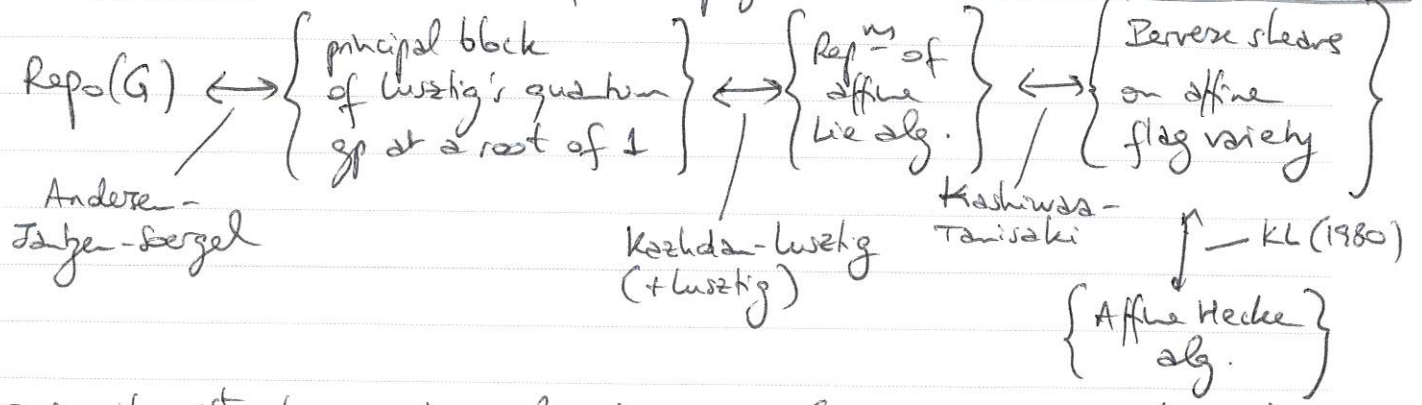 Rep₀(G) ↔ { principal block of Lusztig's quantum gp at a root of 1 } ↔ { Rep<sup>ns</sup> of affine Lie alg. } ↔ { Perverse sheaves on affine flag variety }
Andersen-
Jantzen-Soergel
Kazhdan-Lusztig
(+ Lusztig)
Kashiwara-
Tanisaki
↕ — KL (1980)
{ Affine Hecke
alg. }